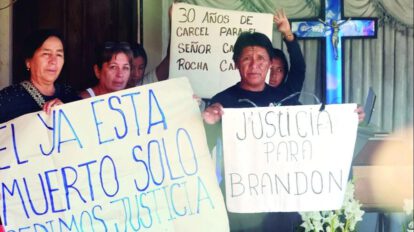 30 AÑOS DE
CARCEL PARA EL
SEÑOR
ROCHA
EL YA ESTA
MUERTO SOLO
PEDIMOS JUSTICIA
JUSTICIA
PARA
BRANDON